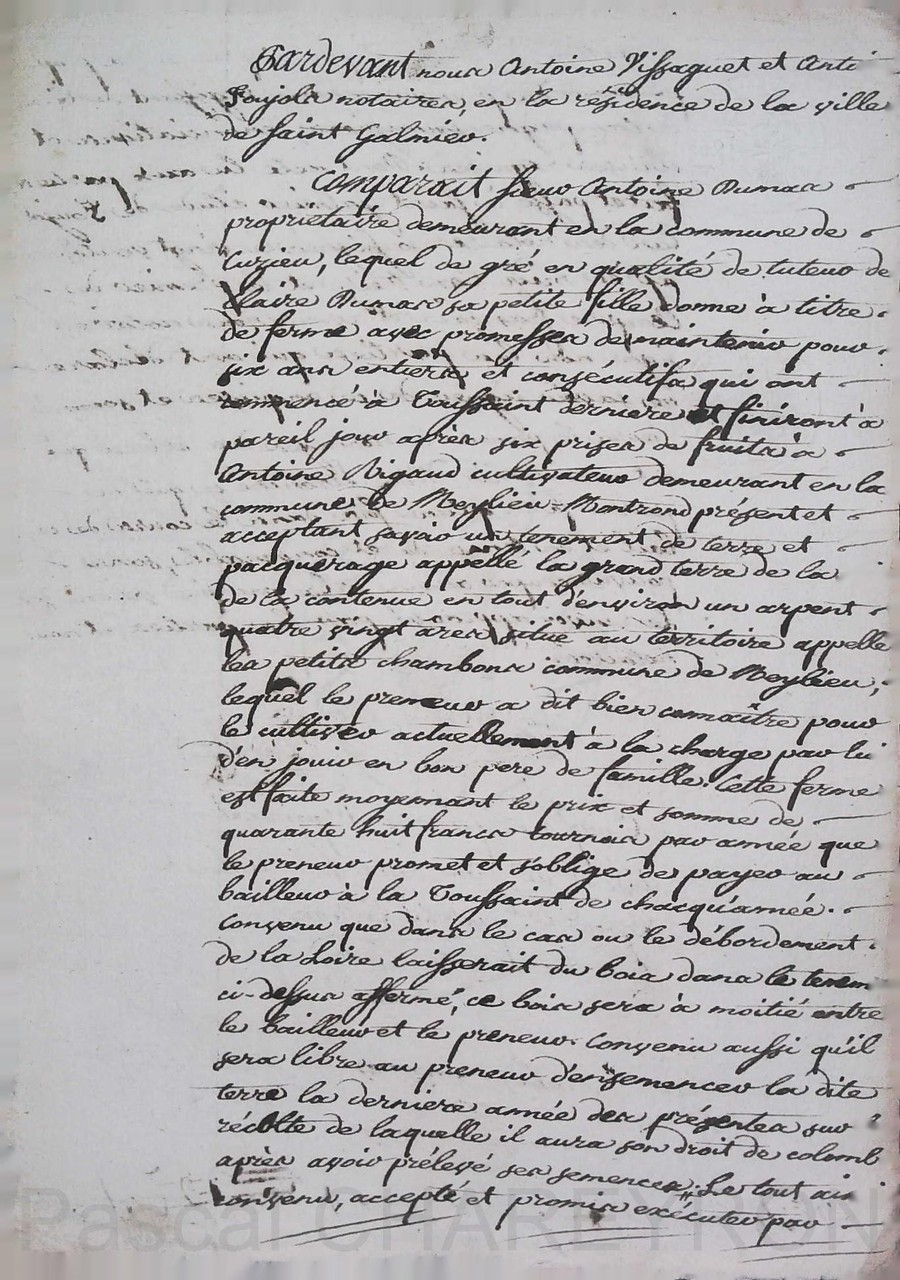 Pardevant nous Antoine Vissaguet et Anti
Poujols notaires, en la résidence de la ville
de Saint Galmier.
Comparait sieur Antoine Dumas
propriétaire demeurant en la commune de
Cuzieu, lequel de gré en qualité de tuteur de
Claire Dumas sa petite fille donne à titre
de ferme avec promesses de maintenir pour
six ans entiers et consécutifs qui ont
commencé à Toussaint derniere et finiront à
pareil jour après six prises de fruits à
Antoine Rigaud cultivateur demeurant en la
commune de Meylieu-Montrond présent et
acceptant savoir un tenement de terre et
pacquerage appellé la grand terre de la
de la contenue en tout d'environ un arpent
quatre vingt âres situé au territoire appelle
les petits chambons commune de Meylieu,
lequel le preneur a dit bien connaître pour
le cultiver actuellement à la charge par lui
d'en jouir en bon pere de famille. Cette ferme
est faite moyennant le prix et somme de
quarante huit francs tournois par année que
le preneur promet et s'oblige de payer au
bailleur à la Toussaint de chacqu'année.
Convenu que dans le cas ou le débordement
de la Loire laisserait du bois dans le tenem
ci-dessus affermé, ce bois sera à moitié entre
le bailleur et le preneur. Convenu aussi qu'il
sera libre au preneur d'ensemencer la dite
terre la derniere année des présentes sur
récolte de laquelle il aura son droit de colomb
après avoir prélevé ses semences. Le tout ain
convenu, accepté et promis exécuter par
Pascal CHAREYRON